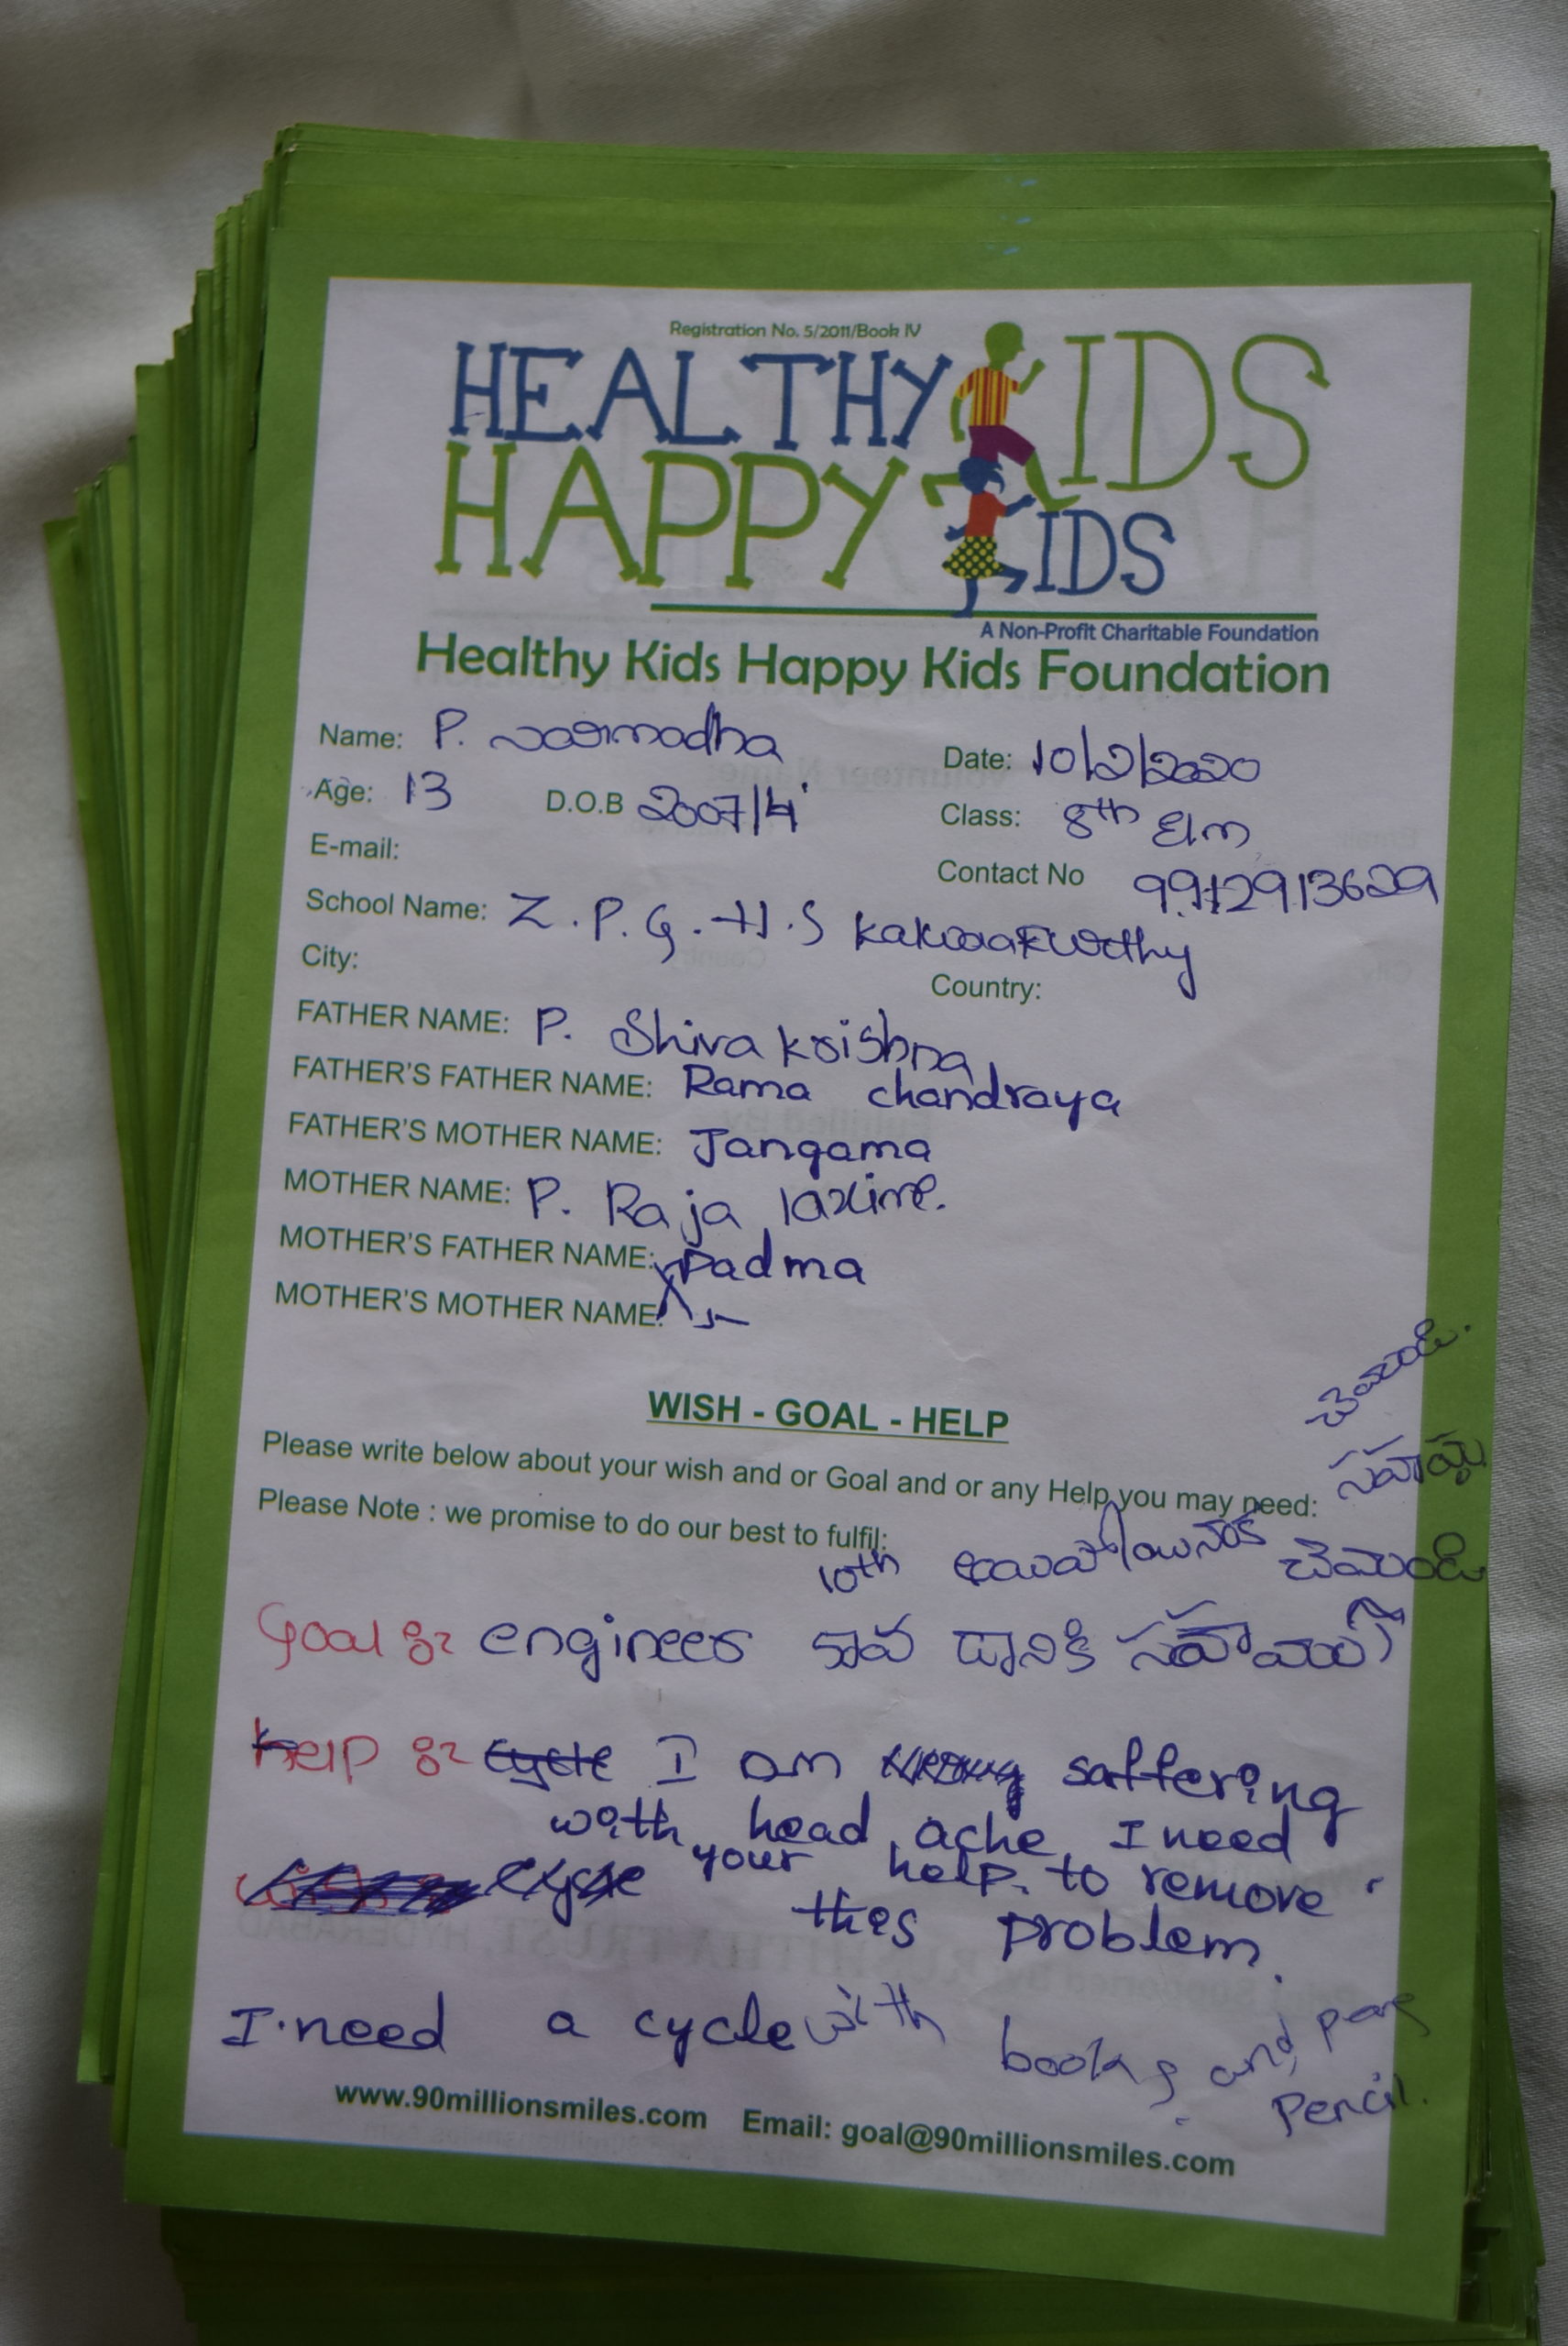 Registration No. 5/2011/Book IV
HEALTHY KIDS
HAPPY KIDS
A Non-Profit Charitable Foundation
Healthy Kids Happy Kids Foundation
Name: P. narmadha
Date: 10/2/2020
Age: 13 D.O.B 2007/4
Class: 8th E/m
E-mail:
Contact No 9912913629
School Name: Z.P.G.H.S
City:
Country:
FATHER NAME: P. Shiva krishna
FATHER'S FATHER NAME: Rama chandraya
FATHER'S MOTHER NAME: Jangama
MOTHER NAME: P. Raja
MOTHER'S FATHER NAME: Padma
MOTHER'S MOTHER NAME:
WISH - GOAL - HELP
Please write below about your wish and or Goal and or any Help you may need:
Please Note : we promise to do our best to fulfil:
10th చెయండి
Goal engineer కావ డానికి
help I am saffering
with head ache I need
your help to remove
this problem.
I need a cycle with books and
Pencil.
www.90millionsmiles.com Email: goal@90millionsmiles.com